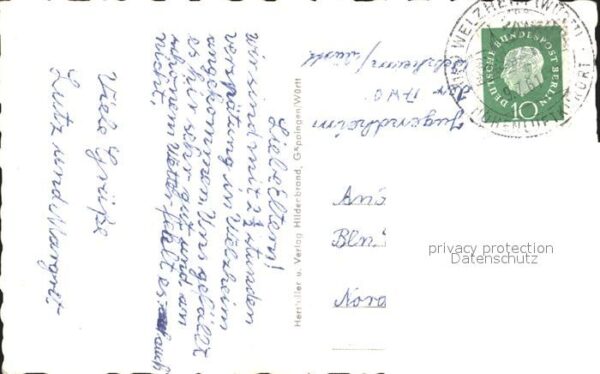 Liebe Eltern!
Wir sind mit 2½ Stunden
Verspätung in Welzheim
angekommen. Uns gefällt
es hir sehr gut und an
schönem Wetter fehlt es auch
nicht.
Viele Grüße
Lutz und Margret
Hersteller u. Verlag Hildenbrand, Göppingen/Württ
Jugendheim
der AWO
Welzheim/Württ
An
Bln.
Nord
WELZHEIM (WÜRTT)
DEUTSCHE BUNDESPOST BERLIN
10
privacy protection
Datenschutz